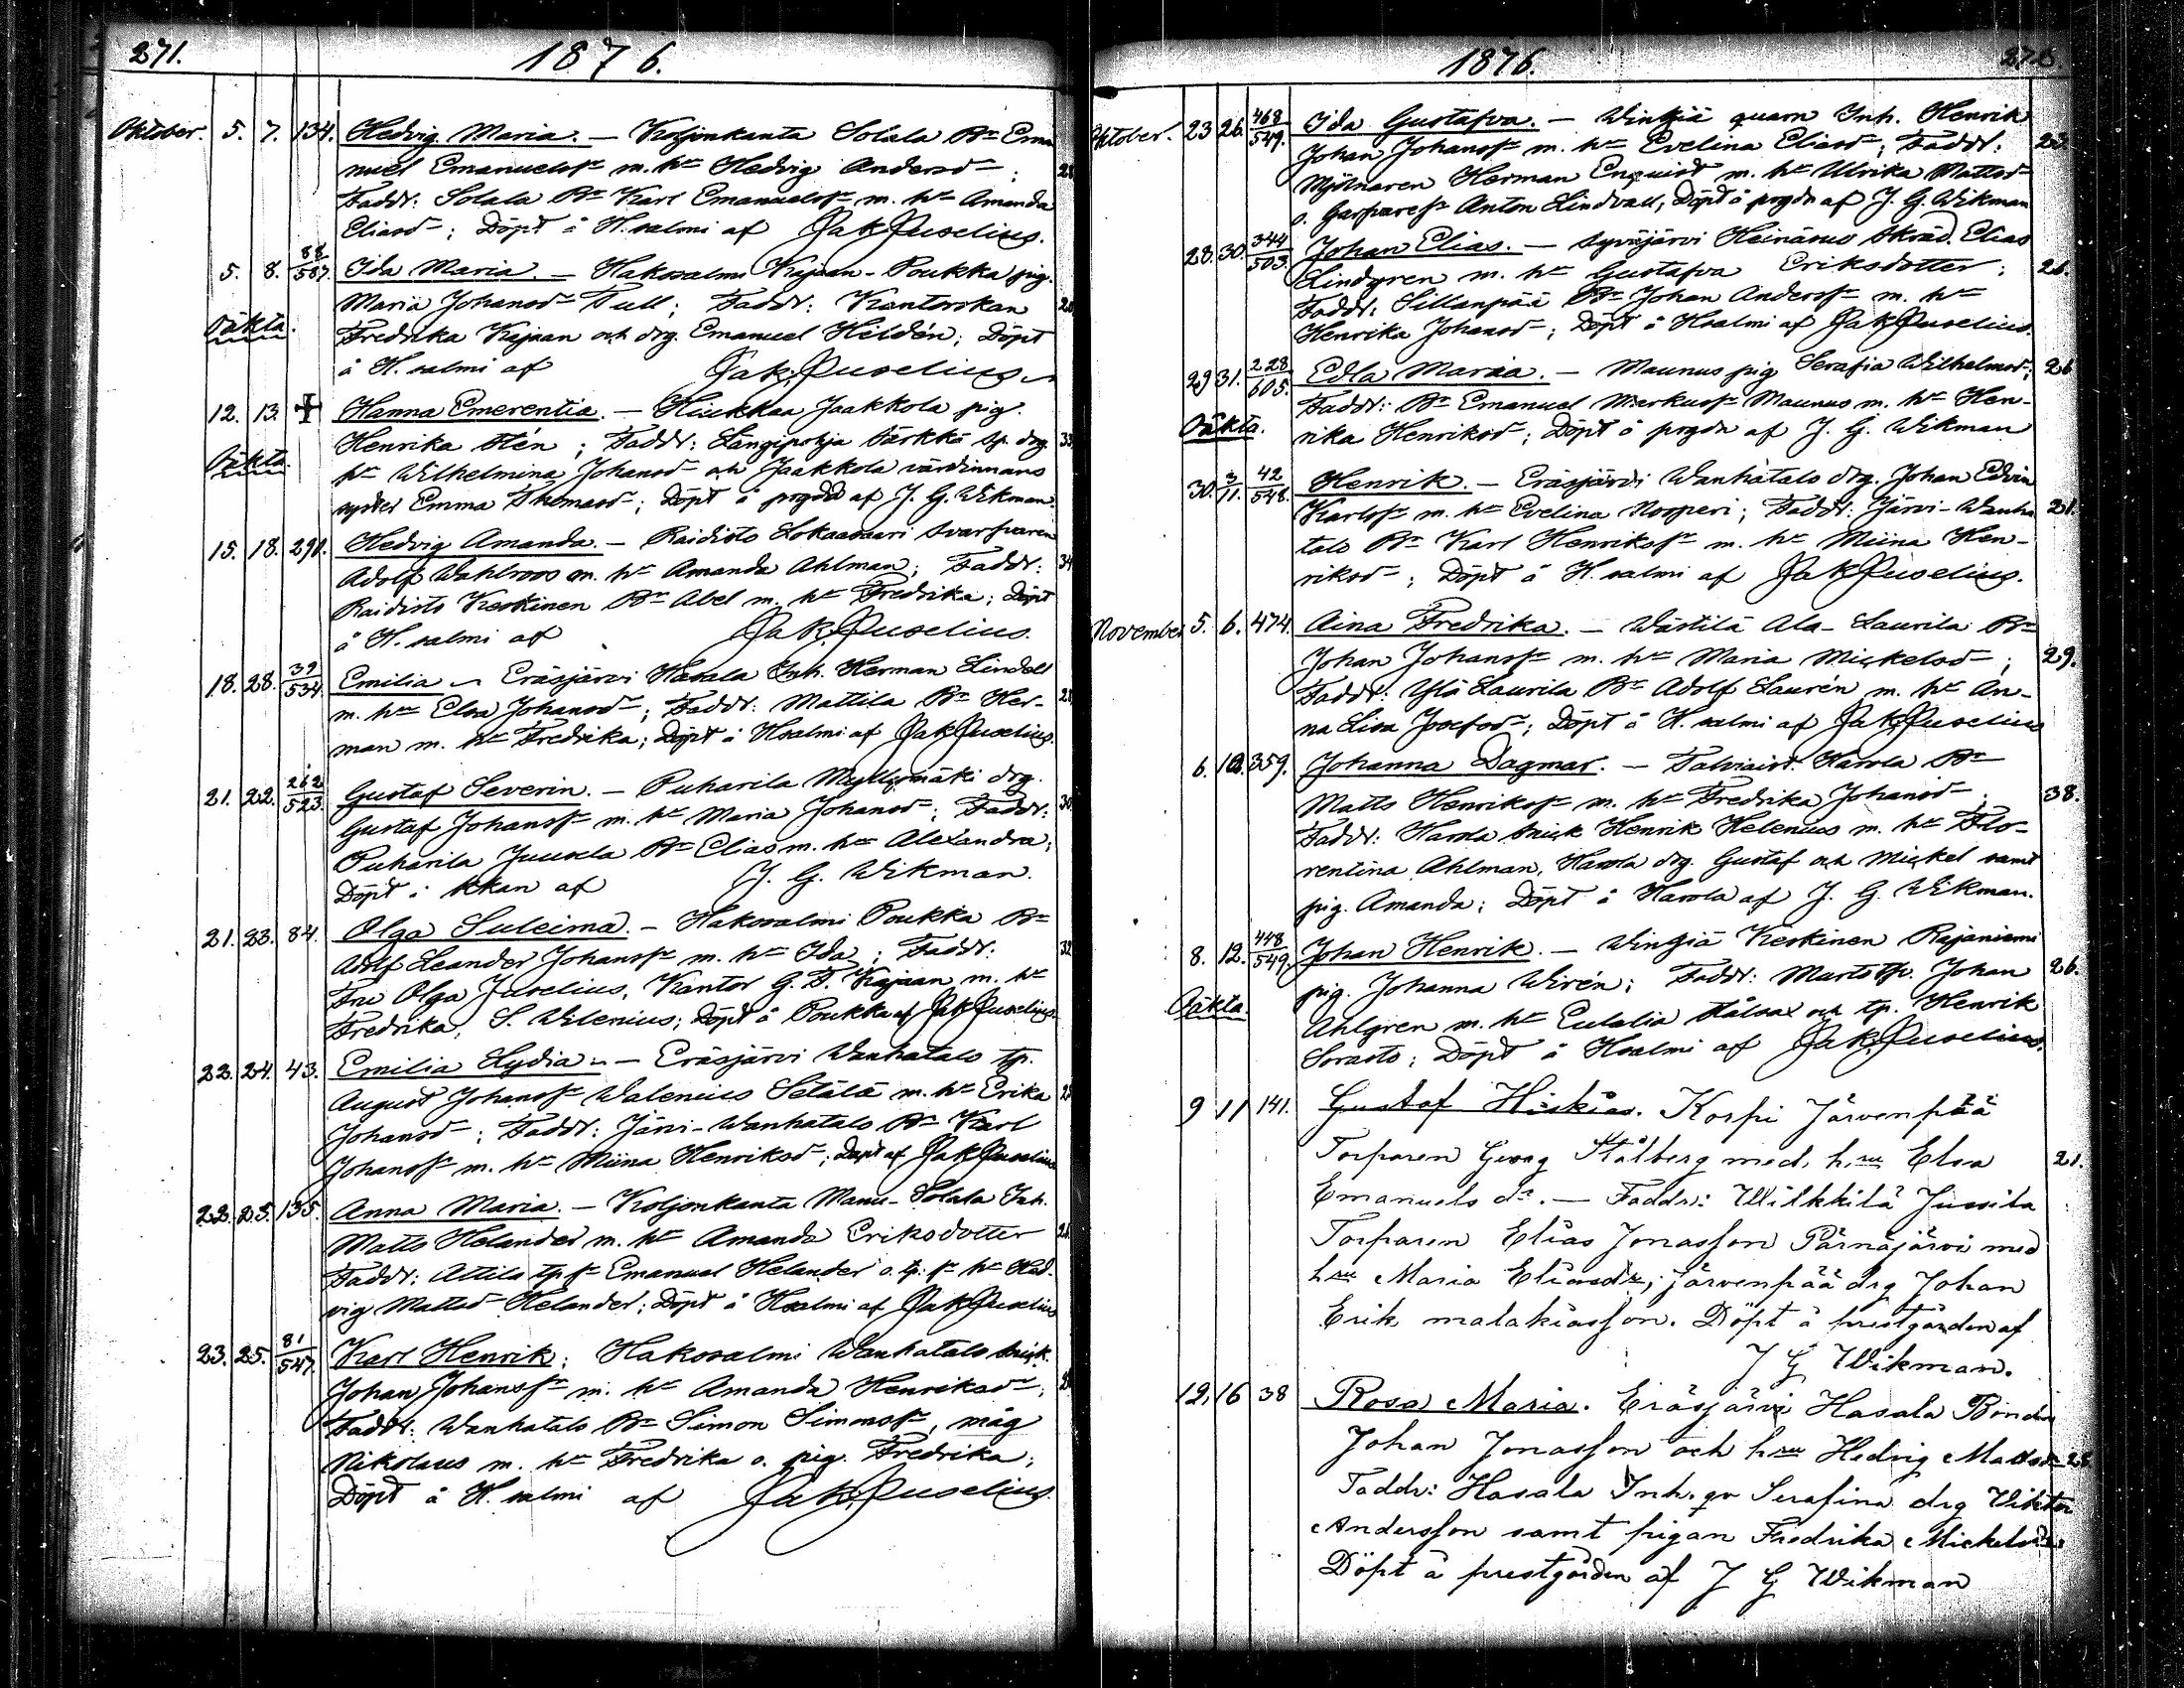 271.
1876.
Oktober. 5. 7. 134. Hedvig Maria. — Koljonkanta Solala Bn Ema
nuel Emanuelss:n m. h:u Hedvig Andersd:r;
Faddr: Solala Bn Karl Emanuelss:n m. h:u Amanda
Eliasd:r; Döpt å H.salmi af Jak. Juselius.
5. 8. 88/587. Ida Maria. — Hakosalmi Kajaan-Poukka pig.
Maria Johansd:r Tull; Faddr: Kantorskan
Oäkta. Fredrika Kajaan och drg. Emanuel Hildén; Döpt
å H.salmi af Jak. Juselius.
12. 13. ✝ Hanna Emerentia. — Hiukkaa Jaakkola pig. 33
Henrika Stén; Faddr: Längipohja Särkkä sp. drg.
Oäkta. h:u Wilhelmina Johansd:r och Jaakkola värdinnans
syster Emma Thomasd:r; Döpt å prgdn af J. G. Wikman.
15. 18. 290. Hedvig Amanda. — Raidisto Lokaasaari svarfvaren
Adolf Wahlroos m. h:u Amanda Ahlman; Faddr: 34
Raidisto Keskinen Bn Abel m. h:u Fredrika; Döpt
å H.salmi af Jak. Juselius.
18. 28. 39/534. Emilia — Eräsjärvi Hasala Inh. Herman Lindell
m. h:u Elsa Johansd:r; Faddr: Mattila Bn Her-
man m. h:u Fredrika; Döpt å Hsalmi af Jak Juselius.
21. 22. 262/523. Gustaf Severin. — Puharila Myllymäki drg.
Gustaf Johanss:n m. h:u Maria Johansd:r; Faddr: 30
Puharila Juusela Bn Elias m. h:u Alexandra;
Döpt i kkan af J. G. Wikman.
21. 23. 84. Olga Suleima. — Hakosalmi Poukka Bn
Adolf Leander Johanss:n m. h:u Ida; Faddr: 32
Fru Olga Juselius, Kantor G. F. Kajaan m. h:u
Fredrika, S. Wilenius; Döpt å Poukka af Jak Juselius.
22. 24. 43. Emilia Lydia — Eräsjärvi Wanhatalo tp.
August Johanss:n Walenius Setälä m. h:u Erika
Johansd:r; Faddr: Järvi-Wanhatalo Bn Karl
Johanss:n m. h:u Miina Henriksd:r; Döpt af Jak Juselius
22. 25. 135. Anna Maria. — Koljonkanta Manu-Solala Inh.
Matts Helander m. h:u Amanda Eriksdotter
Faddr: Attila tp. s:n Emanuel Helander o. tp: s:n h:u Hed-
vig Mattsd:r Helander; Döpt å Hsalmi af Jak Juselius
23. 25. 81/547. Karl Henrik; Hakosalmi Wanhatalo snick.
Johan Johanss:n m. h:u Amanda Henriksd:r;
Faddr: Wanhatalo Bn Simon Simonss:n, måg
Nikolaus m. h:u Fredrika o. pig. Fredrika;
Döpt å H.salmi af Jak. Juselius.
1876.
Oktober. 23 26. 468/549. Ida Gustafva. — Winkiä quarn Inh. Henrik
Johan Johanss:n m. h:u Evelina Eliasd:r; Faddr:
Mjölnaren Herman Enqvist m. h:u Ulrika Mattsd:r
o. Garfvares:n Anton Lindvall, Döpt å prgdn af J. G. Wikman
28. 30. 344/503. Johan Elias. — Syväjärvi Heinänus Skräd. Elias
Lindgren m. h:u Gustafva Eriksdotter;
Faddr: Sillanpää Bn Johan Anderss:n m. h:u
Henrika Johansd:r; Döpt å Hsalmi af Jak Juselius.
29 31. 228/605. Edla Maria. — Maunus pig Serafia Wilhelmsd:r; 26
Faddr: Bn Emanuel Markuss:n Maunus m. h:u Hen-
Oäkta. rika Henriksd:r; Döpt å prgdn af J. G. Wikman
30. 3/11. 42/548. Henrik. — Eräsjärvi Wanhatalo drg. Johan Edvin
Karlss:n m. h:u Evelina Nosperi; Faddr: Järvi-Wanha 21.
talo Bn Karl Henrikss:n m. h:u Miina Hen-
riksd:r; Döpt å H.salmi af Jak Juselius.
November 5. 6. 474. Aina Fredrika. — Wästilä Ala-Laurila Bn
Johan Johanss:n m. h:u Maria Mickelsd:r; 29.
Faddr: Ylä Laurila Bn Adolf Laurén m. h:u An-
na Lisa Josefsd:r; Döpt å H.salmi af Jak. Juselius
6. 359. Johanna Dagmar. — Talviais. Harola Bn
Matts Henrikss:n m. h:u Fredrika Johansd:r; 38.
Faddr: Harola snick Henrik Helenius m. h:u Flo-
rentina Ahlman, Harola drg. Gustaf och Mickel samt
pig. Amanda; Döpt å Harola af J. G. Wikman.
8. 12. 448/549. Johan Henrik. — Winkiä Keskinen Rajaniemi
pig. Johanna Wirén; Faddr: Murto tp. Johan 26.
Oäkta. Ahlgren m. h:u Eulalia Stålsax och tp. Henrik
Sorasto; Döpt å Hsalmi af Jak. Juselius.
9 11 141. Gustaf Hiskias. Korpi Järvenpää
Torparen Georg Stålberg med. h:ru Elsa 21.
Emanuels d:r. — Faddr: Wilkkilä Jussila
Torparen Elias Jonasson Pärnäjärvi med
h:ru Maria Eliasd:r; Järvenpää drg Johan
Erik Malakiasson. Döpt å prestgården af
J G Wikman.
12, 16 38 Rosa Maria. Eräsjärvi Hasala Bonden
Johan Jonasson och h:ru Hedvig Mattsd:r 28
Faddr: Hasala Inh. qv Serafina drg Viktor
Andersson samt pigan Fredrika Mickelsd:r
Döpt å prestgården af J G Wikman